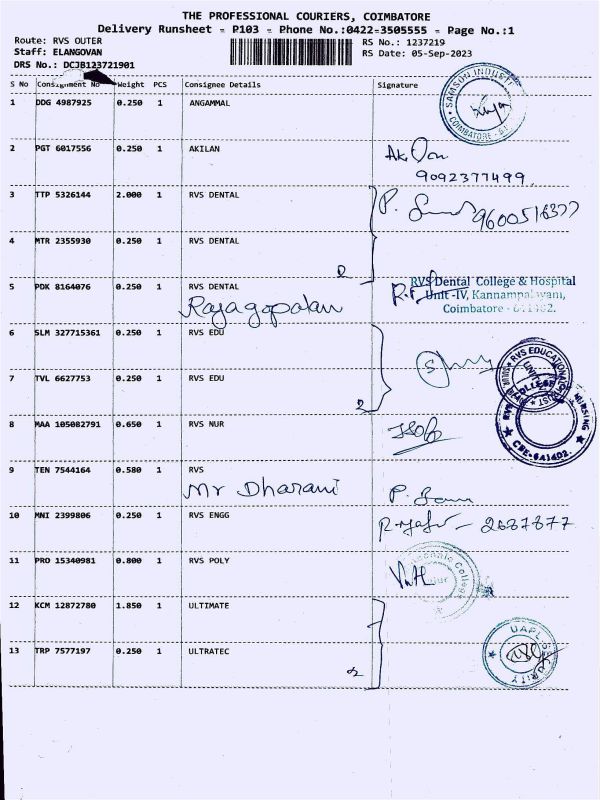 THE PROFESSIONAL COURIERS, COIMBATORE
Delivery Runsheet = P103 = Phone No.:0422=3505555 = Page No.:1
Route: RVS OUTER
RS No.: 1237219
Staff: ELANGOVAN
RS Date: 05-Sep-2023
DRS No.: DCJB123721901
S No Consignment No Weight PCS Consignee Details Signature
1 DDG 4987925 0.250 1 ANGAMMAL
SAMSON INDUST
COIMBATORE
2 PGT 6017556 0.250 1 AKILAN
9092377499
3 TTP 5326144 2.000 1 RVS DENTAL
P.
4 MTR 2355930 0.250 1 RVS DENTAL
2
5 PDK 8164076 0.250 1 RVS DENTAL
Rajagopalan
RVS Dental College & Hospital
Unit -IV, Kannampalayam,
Coimbatore - 641402.
6 SLM 327715361 0.250 1 RVS EDU
RVS EDUCATIONAL TRUST
7 TVL 6627753 0.250 1 RVS EDU
2
RVS COLLEGE NURSING
CBE-641402.
8 MAA 105082791 0.650 1 RVS NUR
9 TEN 7544164 0.580 1 RVS
Mr Dharani
P.
10 MNI 2399806 0.250 1 RVS ENGG
2687877
11 PRO 15340981 0.800 1 RVS POLY
College
12 KCM 12872780 1.850 1 ULTIMATE
13 TRP 7577197 0.250 1 ULTRATEC
2
UAPL SECURITY